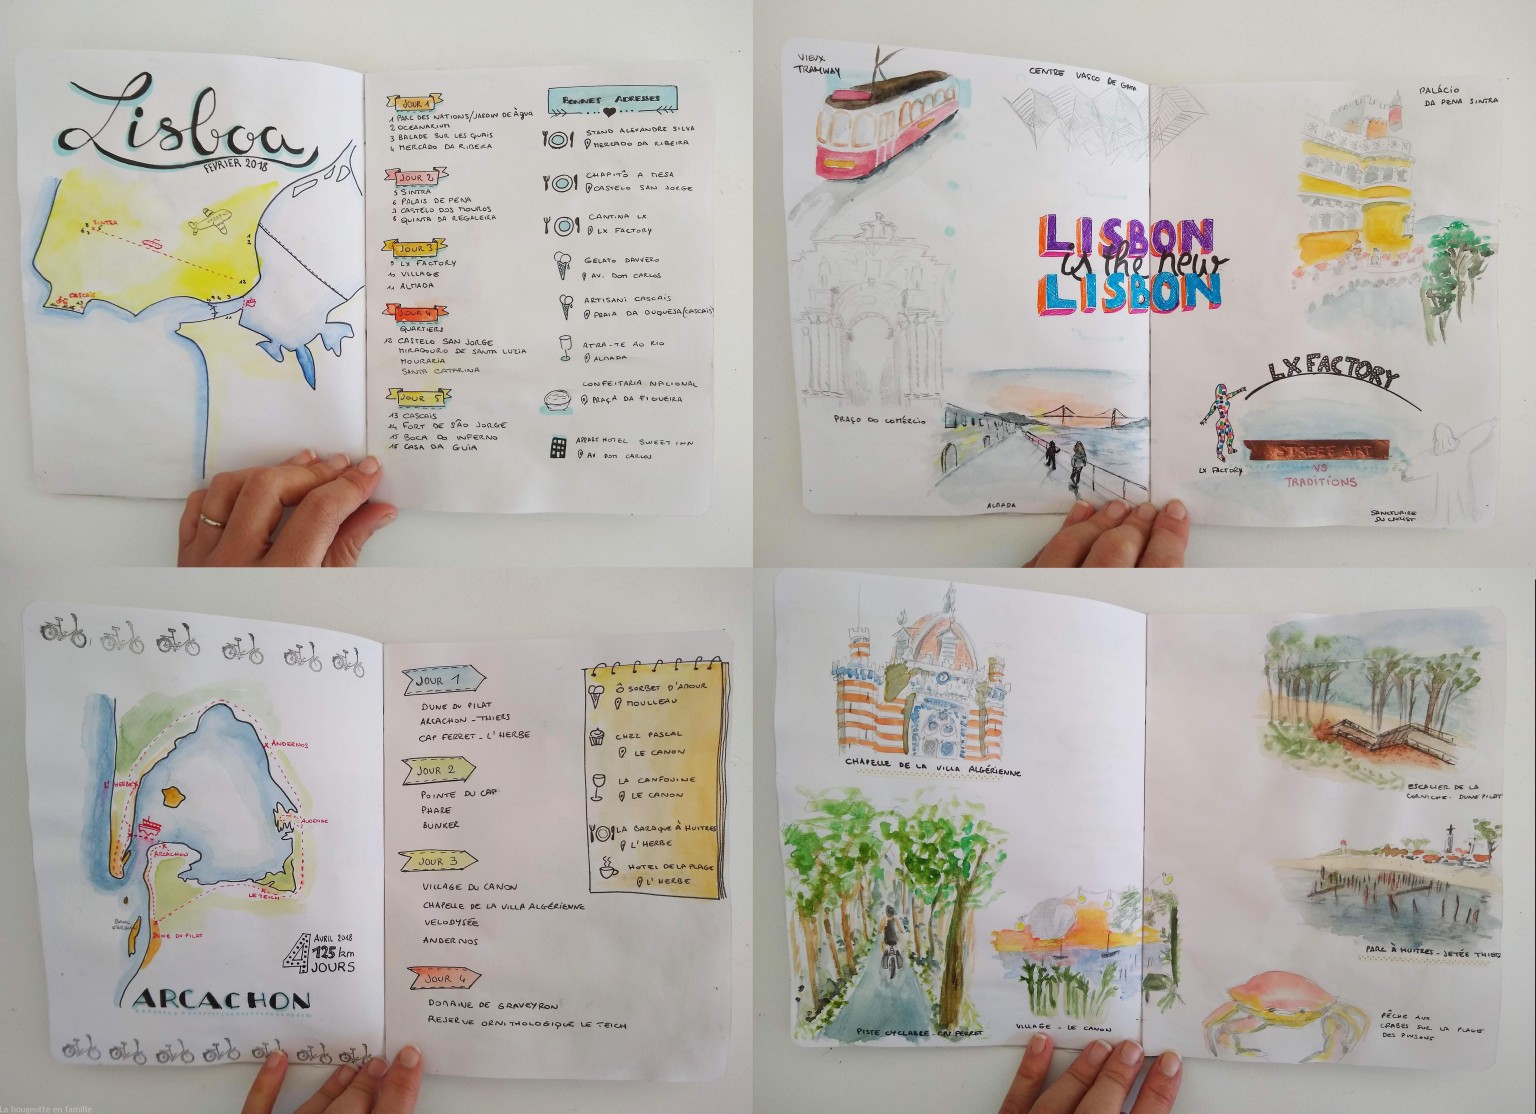 Lisboa
FEVRIER 2018
SINTRA
CASCAIS
JOUR 1
1 PARC DES NATIONS/JARDIN DE ÀGUA
2 OCEANARIUM
3 BALADE SUR LES QUAIS
4 MERCADO DA RIBEIRA
JOUR 2
5 SINTRA
6 PALAIS DE PENA
7 CASTELO DOS MOUROS
8 QUINTA DA REGALEIRA
JOUR 3
9 LX FACTORY
10 VILLAGE
11 ALMADA
JOUR 4
QUARTIERS
12 CASTELO SAN JORGE
MIRADOURO DE SANTA LUZIA
MOURARIA
SANTA CATARINA
JOUR 5
13 CASCAIS
14 FORT DE SÃO JORGE
15 BOCA DO INFERNO
16 CASA DA GUIA
BONNES ADRESSES
STAND ALEXANDRE SILVA
MERCADO DA RIBEIRA
CHAPITÔ A MESA
CASTELO SAN JORGE
CANTINA LX
LX FACTORY
GELATO DAVVERO
AV. DOM CARLOS
ARTISANI CASCAIS
PRAIA DA DUQUESA/CASCAIS
ATRA-TE AO RIO
ALMADA
CONFEITARIA NACIONAL
PRAÇA DA FIGUEIRA
APPART HOTEL SWEET INN
AV DOM CARLOS
VIEUX
TRAMWAY
CENTRE VASCO DE GAMA
PALÁCIO
DA PENA SINTRA
LISBON
is the new
LISBON
PRAÇO DO COMÉRCIO
ALMADA
LX FACTORY
LX FACTORY
STREET ART
VS
TRADITIONS
SANCTUAIRE
DU CHRIST
ANDERNOS
L'HERBE
AUDENGE
ARCACHON
LE TEICH
BANC
D'ARGUIN
DUNE DU PILAT
4
AVRIL 2018
125 km
JOURS
ARCACHON
JOUR 1
DUNE DU PILAT
ARCACHON - THIERS
CAP FERRET - L'HERBE
JOUR 2
POINTE DU CAP
PHARE
BUNKER
JOUR 3
VILLAGE DU CANON
CHAPELLE DE LA VILLA ALGÉRIENNE
VELODYSÉE
ANDERNOS
JOUR 4
DOMAINE DE GRAVEYRON
RESERVE ORNITHOLOGIQUE LE TEICH
Ô SORBET D'AMOUR
MOULLEAU
CHEZ PASCAL
LE CANON
LA CANFOUINE
LE CANON
LA BARAQUE À HUITRES
L'HERBE
HOTEL DE LA PLAGE
L'HERBE
CHAPELLE DE LA VILLA ALGÉRIENNE
ESCALIER DE LA
CORNICHE - DUNE PILAT
PARC À HUITRES - JETÉE THIERS
PISTE CYCLABRE - CAP FERRET
VILLAGE - LE CANON
PÊCHE AUX
CRABES SUR LA PLAGE
DES PINSONS
La bougeotte en famille